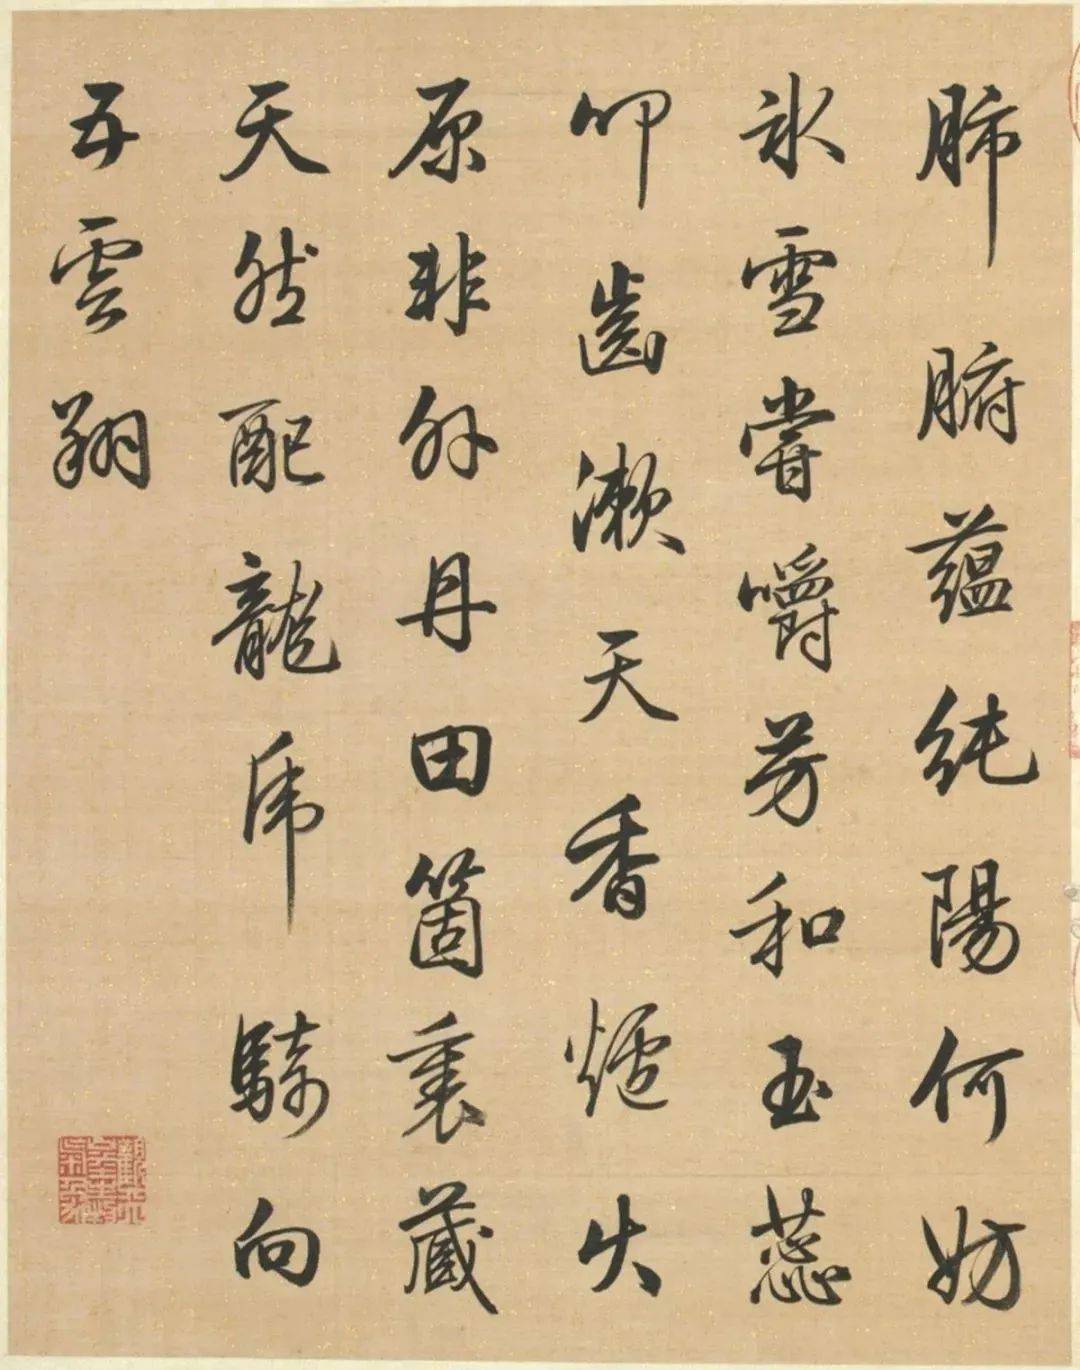 肺腑藴純陽何妨
冰雪嘗嚼芳和玉蕊
叩齒漱天香爐火
原非外丹田箇裏藏
天然配龍虎騎向
五雲翔